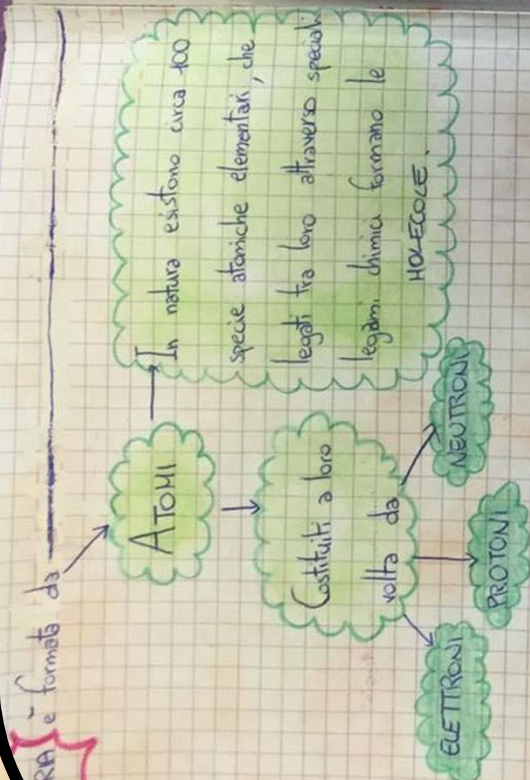 RA è formata da
ATOMI
In natura esistono circa 100
specie atomiche elementari, che
legati tra loro attraverso speciali
legami chimici formano le
MOLECOLE.
Costituiti a loro
volta da
ELETTRONI
PROTONI
NEUTRONI